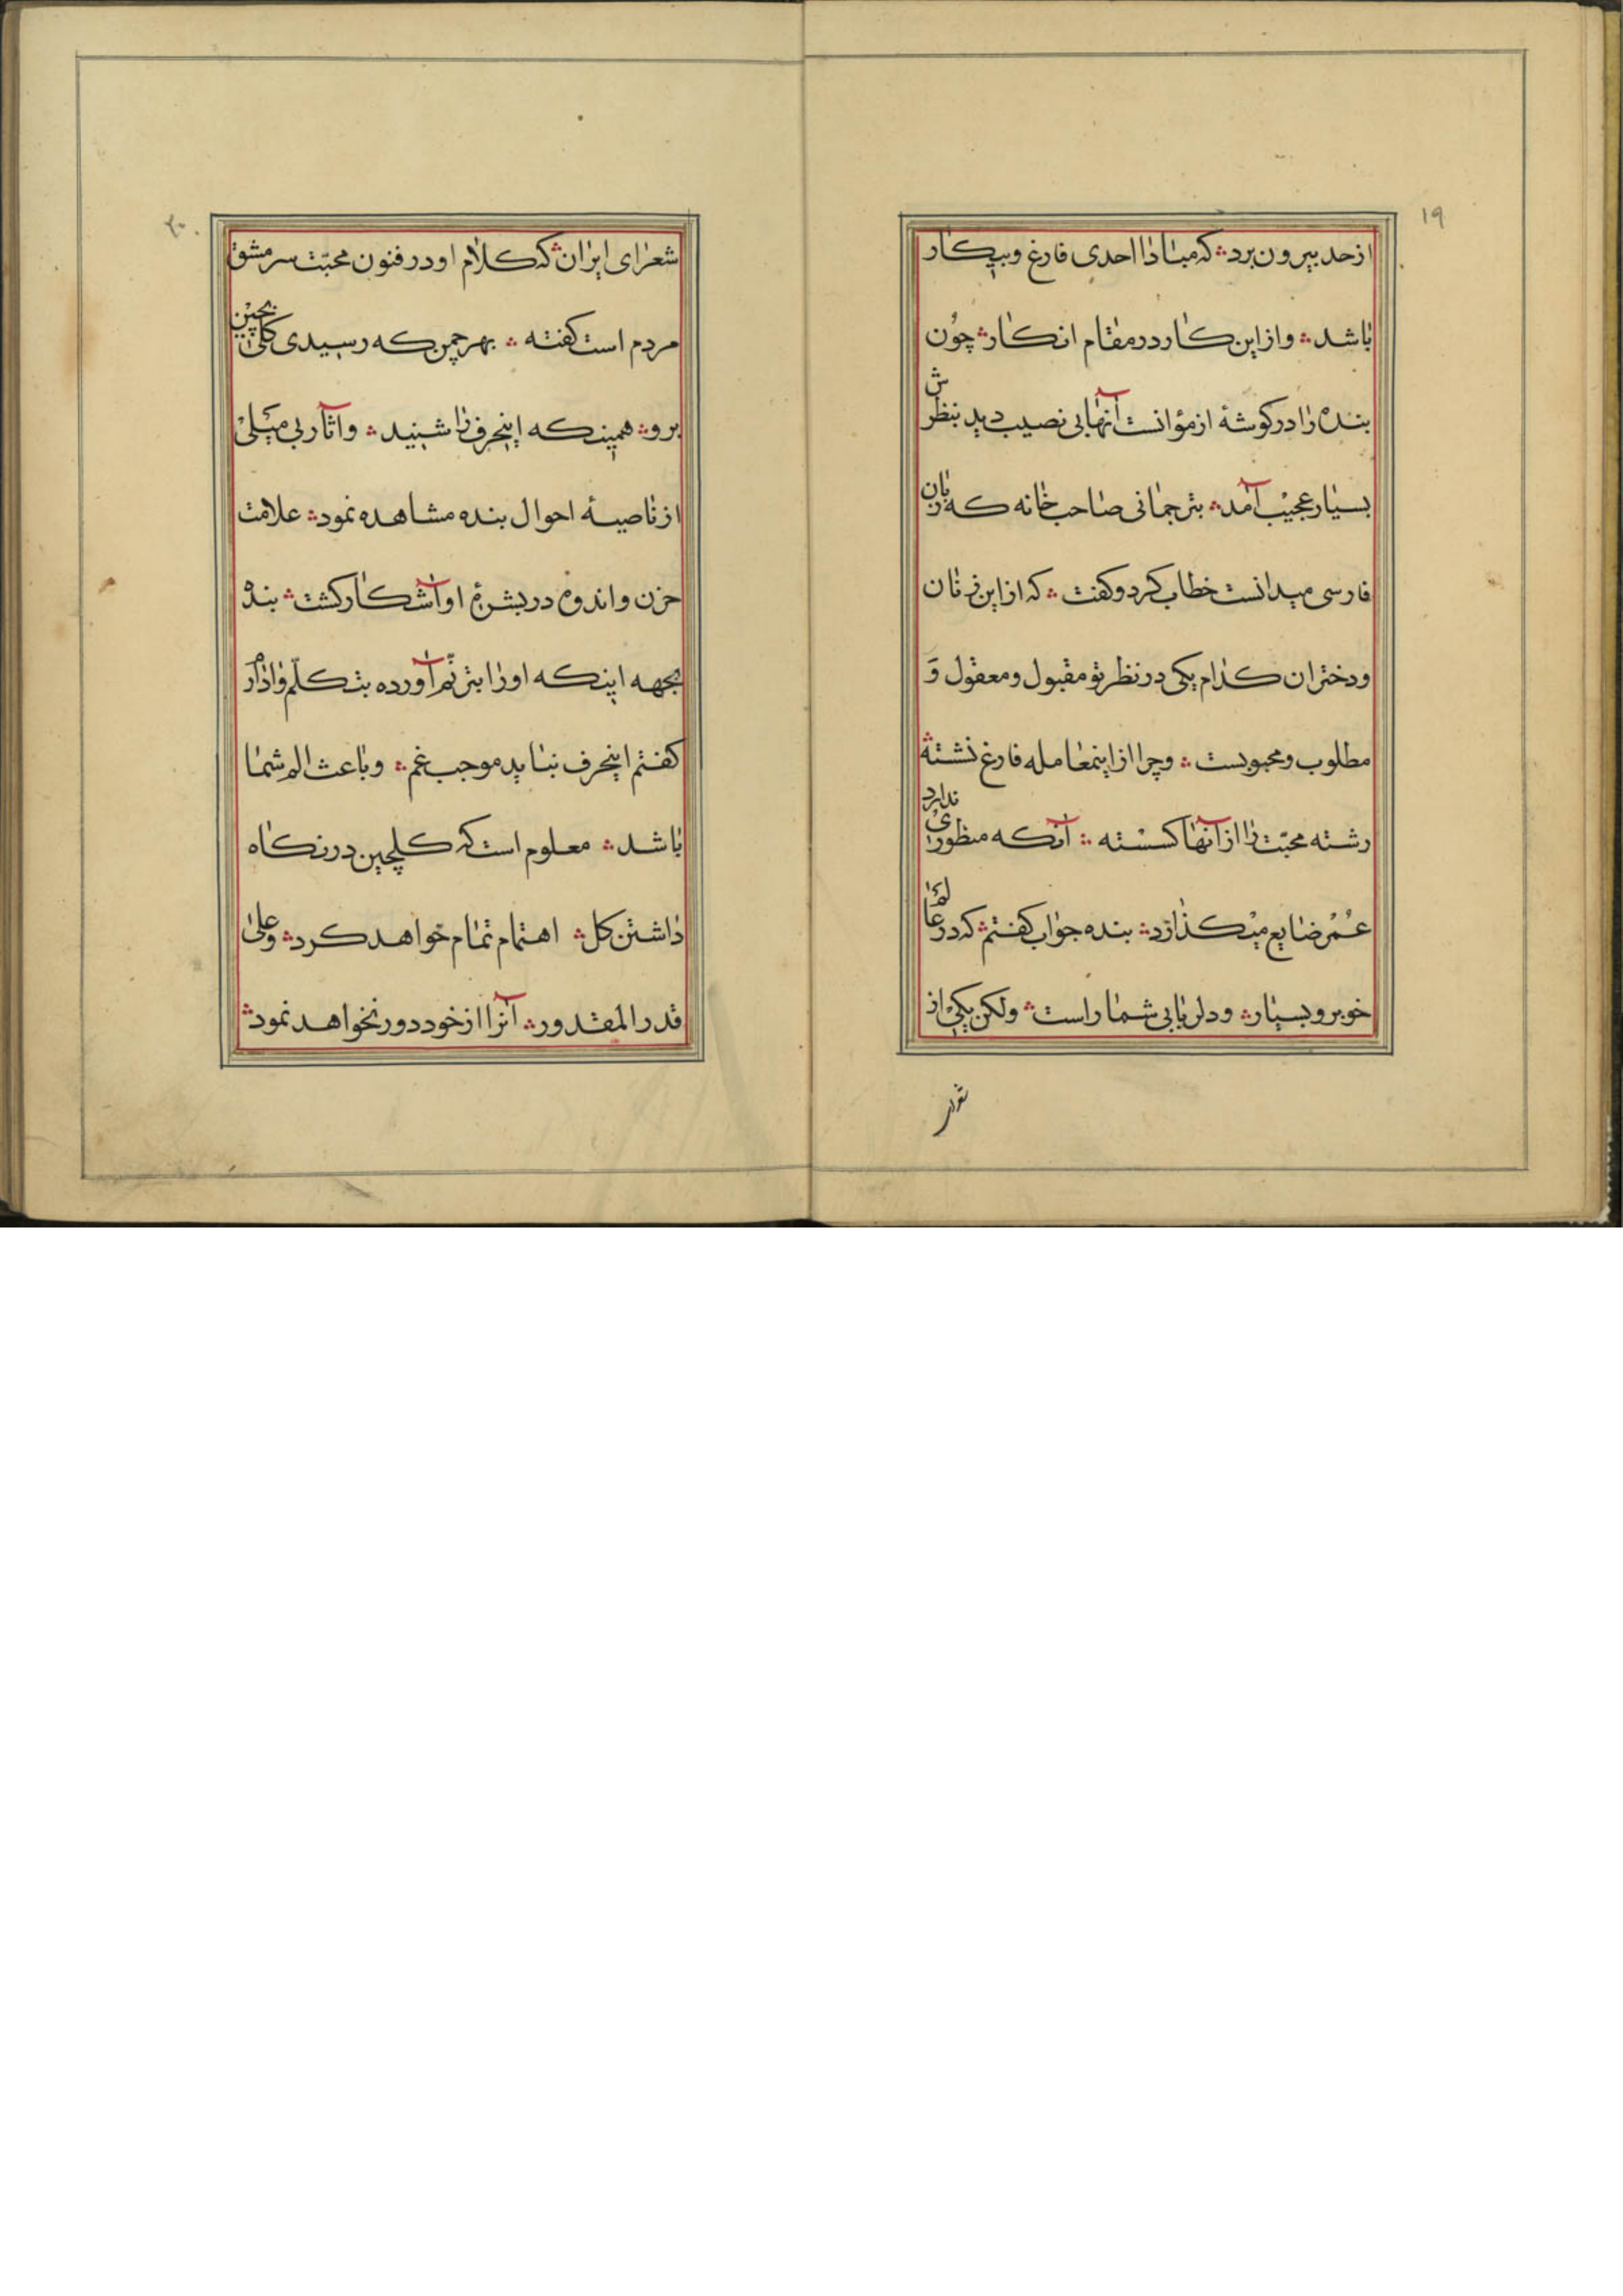 ۱۹
از حد بیرون برد ؞ که مبادا احدی فارغ و بیکار
باشد ؞ و از این کار در مقام انکار ؞ چون
بنده را در کوشهٔ از مؤانست آنها بی نصیب دید بنظرش
بسیار عجیب آمد ؞ بترجمانی صاحب خانه که زبان
فارسی میدانست خطاب کرد و کفت ؞ که از این زنان
و دختران کدام یکی در نظر تو مقبول و معقول و
مطلوب و محبوبست ؞ و چرا از اینمعامله فارغ نشسته
رشته محبّت را از آنها کسسته ؞ آنکه منظوری ندارد
عُمْر ضایع میکذارد ؞ بنده جواب کفتم ؞ که در عالم
خوبرو بسیار ؞ و دلربایی شما راست ؞ ولکن یکی از
شعرای
۲۰
شعرای ایران ؞ که کلام او در فنون محبّت سرمشق
مردم است کفته ؞ بهر چمن که رسیدی کلی بچین
برو ؞ همینکه اینحرف را شنید ؞ و آثار بی میلی
از ناصیهٔ احوال بنده مشاهده نمود ؞ علامت
حزن و اندوه در بشرهٔ او آشکار کشت ؞ بنده
بجهه اینکه او را بترنّم آورده بتکلّم وادارم
کفتم اینحرف نباید موجب غم ؞ و باعث الم شما
باشد ؞ معلوم است که کلچین در نکاه
داشتن کل ؞ اهتمام تمام خواهد کرد ؞ و علی
قدر المقدور ؞ آنرا از خود دور نخواهد نمود ؞